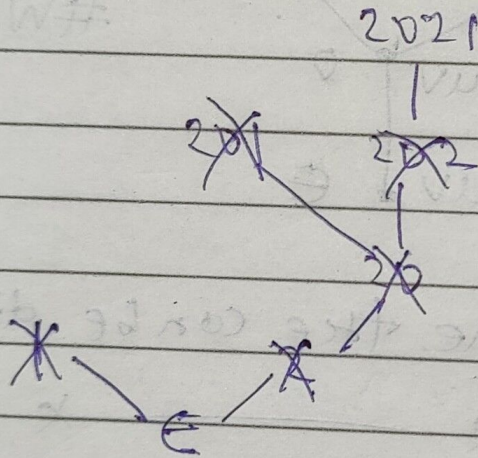 2021
201 202
20
1 2
ϵ